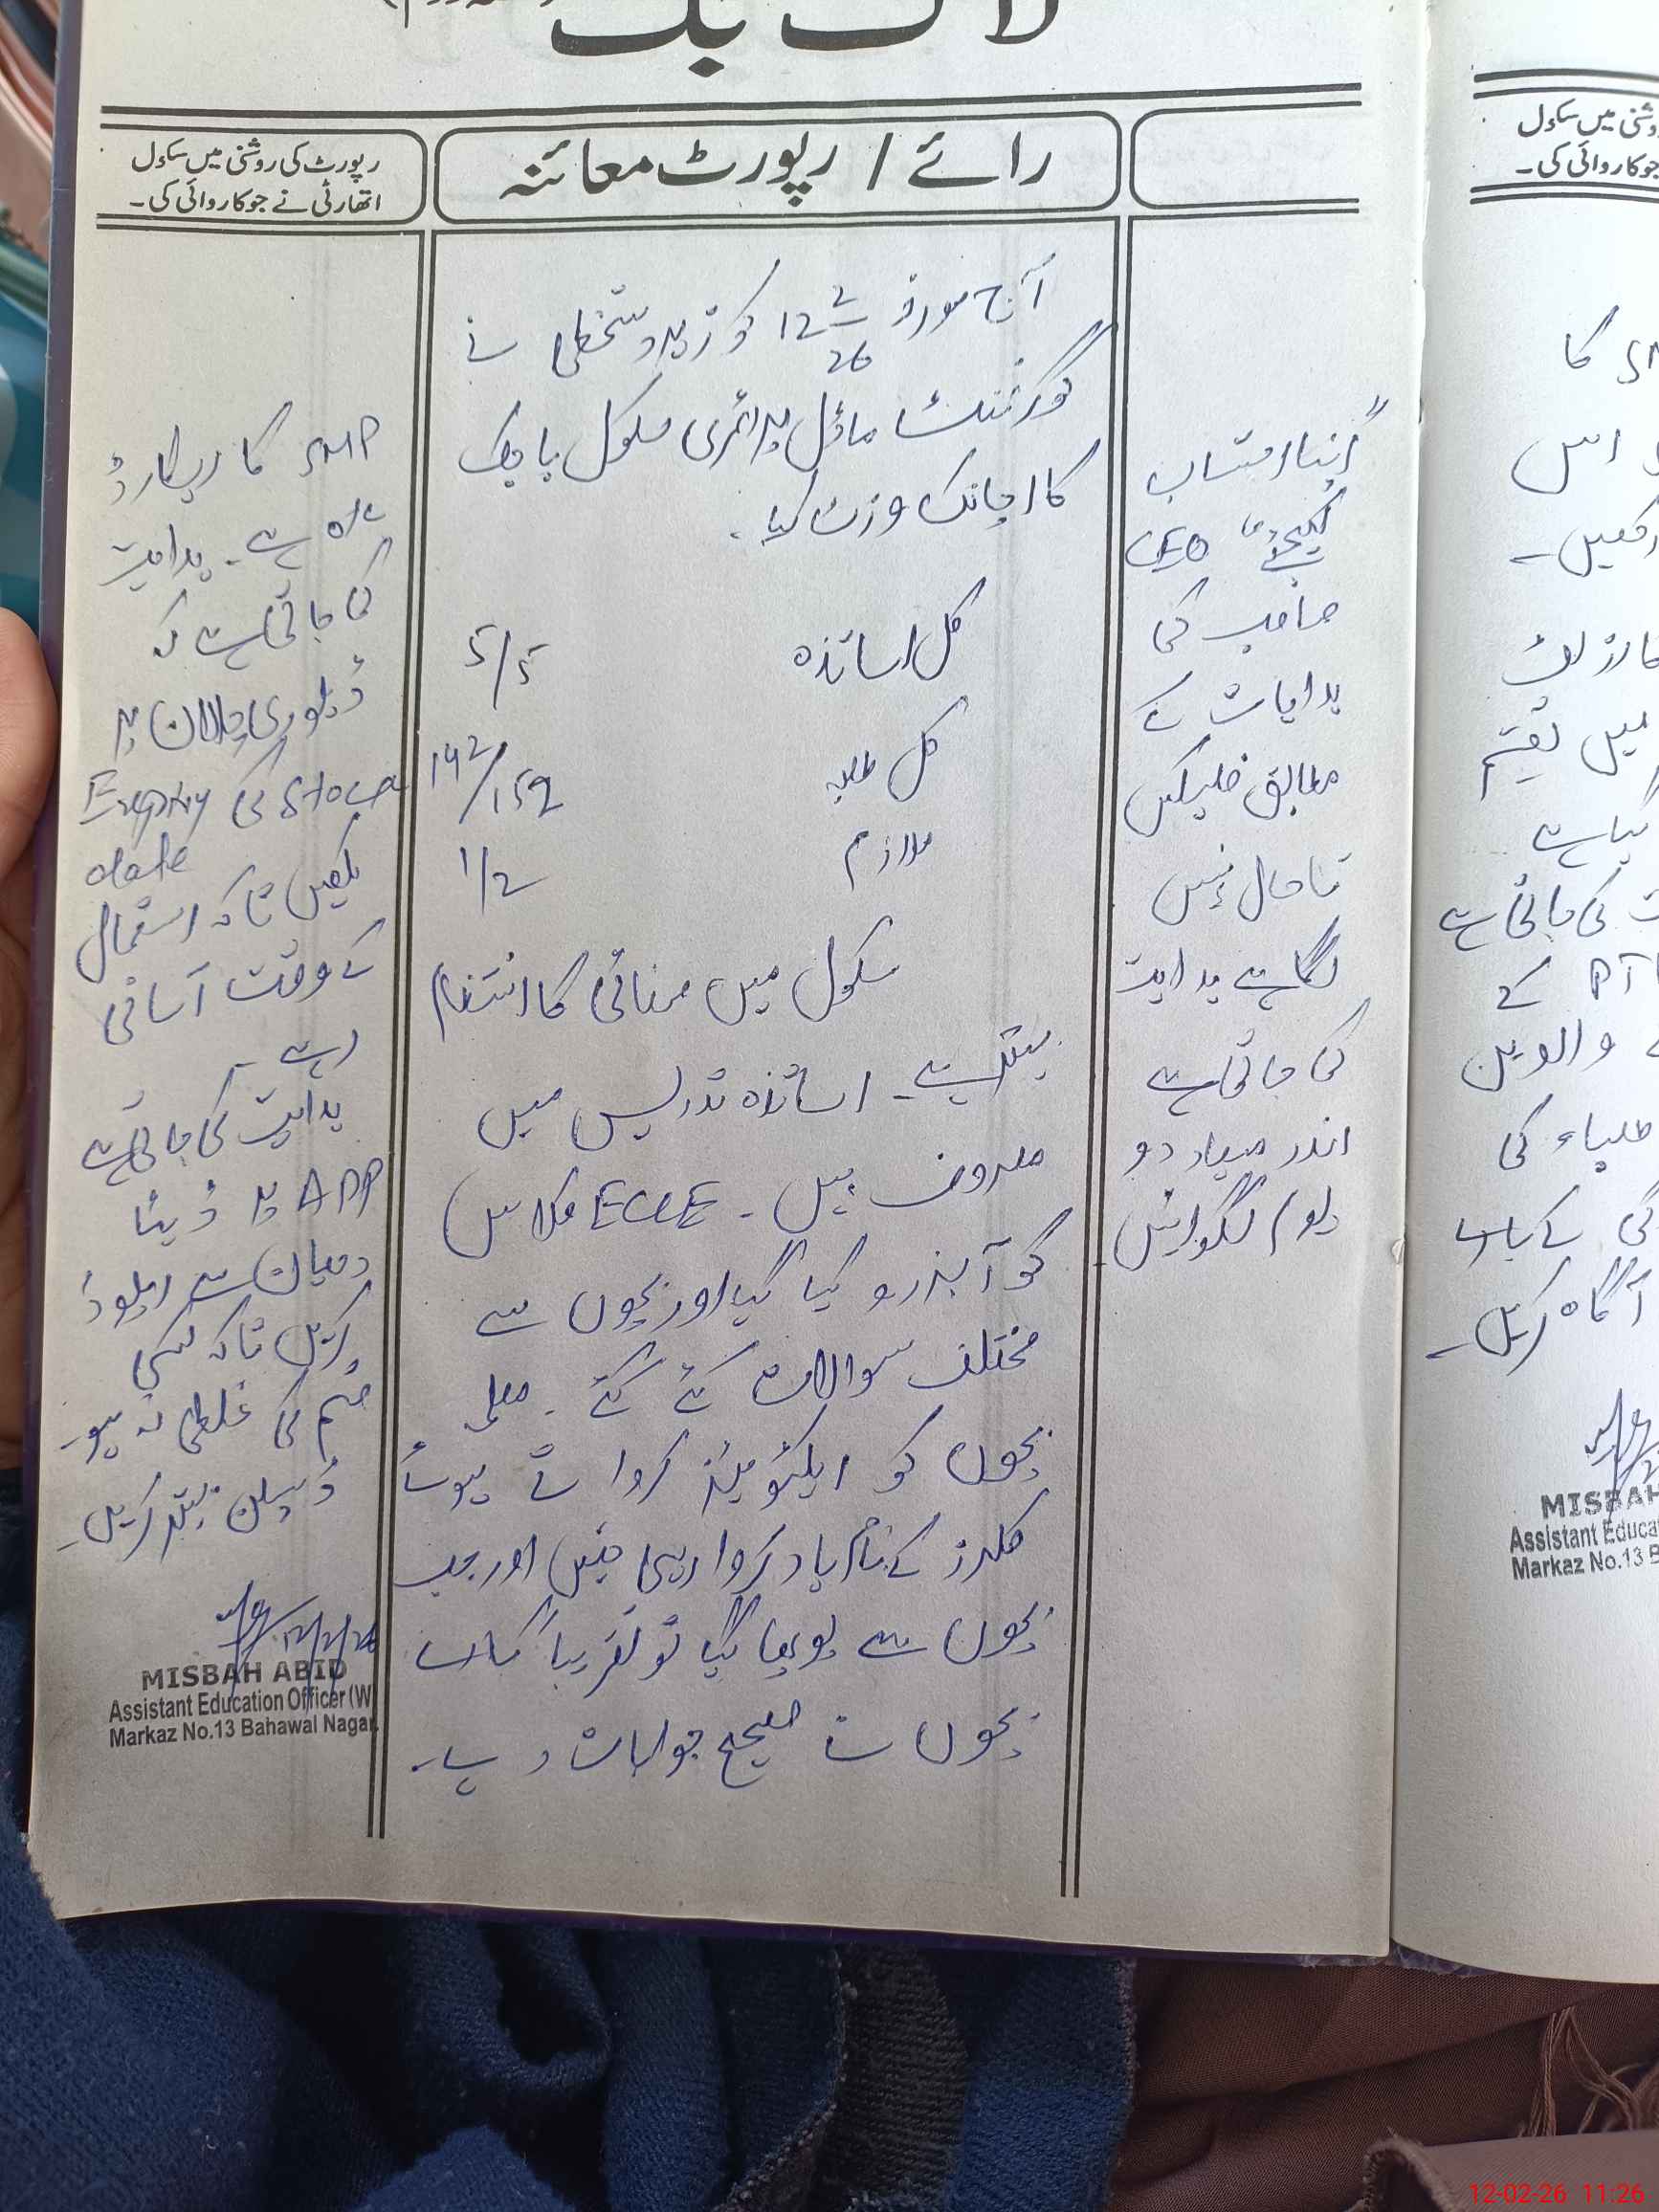 لاگ بک
رائے / رپورٹ معائنہ
رپورٹ کی روشنی میں سکول
اتھارٹی نے جو کاروائی کی۔
"اپنا احتساب
کیجئے" CEO
صاحب کی
ہدایات کے
مطابق فلیکس
تاحال نہیں
لگا ہے ہدایت
کی جاتی ہے
اندر میعاد دو
یوم لگوائیں۔
آج مورخہ 12 2 26 کو زیر دستخطی نے
گورنمنٹ ماڈل پرائمری سکول
کا اچانک وزٹ کیا۔
کل اساتذہ 5/5
کل طلبہ 142/159
ملازم 1/2
سکول میں صفائی کا انتظام
بہتر ہے۔ اساتذہ تدریس میں
مصروف ہیں۔ ECCE کلاس
کو آبزرو کیا گیا اور بچوں سے
مختلف سوالات کئے گئے۔ معلمہ
بچوں کو ایکٹویٹیز کرواتے ہوئے
کلرز کے نام یاد کروا رہی تھیں اور جب
بچوں سے پوچھا گیا تو تقریباً سارے
بچوں نے صحیح جوابات دیے۔
SMP کا ریکارڈ
ہے۔ ہدایت
کی جاتی ہے کہ
ڈیلوری چالان پر
Stock کی Expiry
date
لکھیں تاکہ استعمال
کے وقت آسانی
رہے۔
ہدایت کی جاتی ہے
APP پر ڈیٹا
دھیان سے اپلوڈ
کریں تاکہ کسی
قسم کی غلطی نہ ہو۔
ڈسپلن بہتر کریں۔
12/2/26
MISBAH ABID
Assistant Education Officer (W)
Markaz No.13 Bahawal Nagar.
روشنی میں سکول
جو کاروائی کی۔
کا
اس
رکھیں۔
کارڈ
میں تقسیم
کیا ہے
کی جاتی ہے
کے
والدین
طلباء کی
کے بارے
آگاہ کریں۔
MISBAH
Assistant Educa
Markaz No.13 B
12-02-26 11:26